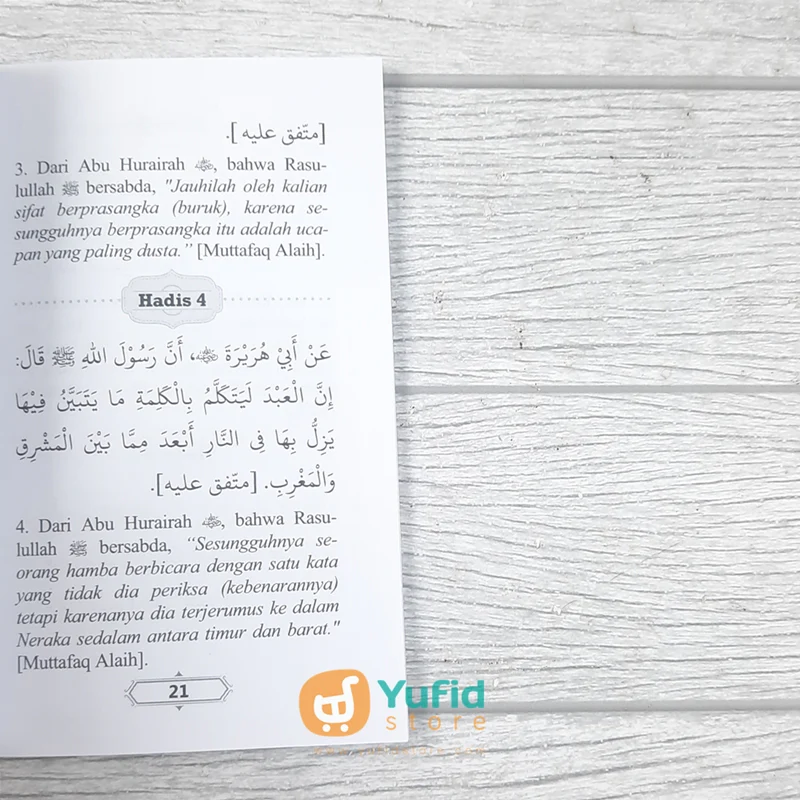 [متّفق عليه].
3. Dari Abu Hurairah ؓ, bahwa Rasu-
lullah ﷺ bersabda, "Jauhilah oleh kalian
sifat berprasangka (buruk), karena se-
sungguhnya berprasangka itu adalah uca-
pan yang paling dusta.” [Muttafaq Alaih].
Hadis 4
عَنْ أَبِيْ هُرَيْرَةَ ؓ، أَنَّ رَسُوْلَ اللهِ ﷺ قَالَ:
إِنَّ الْعَبْدَ لَيَتَكَلَّمُ بِالْكَلِمَةِ مَا يَتَبَيَّنُ فِيْهَا
يَزِلُّ بِهَا فِى النَّارِ أَبْعَدَ مِمَّا بَيْنَ الْمَشْرِقِ
وَالْمَغْرِبِ. [متّفق عليه].
4. Dari Abu Hurairah ؓ, bahwa Rasu-
lullah ﷺ bersabda, “Sesungguhnya se-
orang hamba berbicara dengan satu kata
yang tidak dia periksa (kebenarannya)
tetapi karenanya dia terjerumus ke dalam
Neraka sedalam antara timur dan barat."
[Muttafaq Alaih].
21
Yufid
store